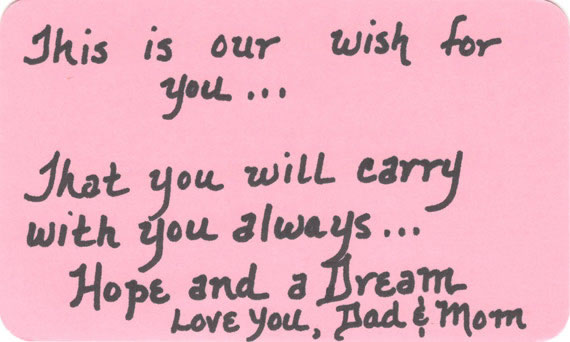 This is our wish for
you...
That you will carry
with you always...
Hope and a Dream
Love You, Dad & Mom